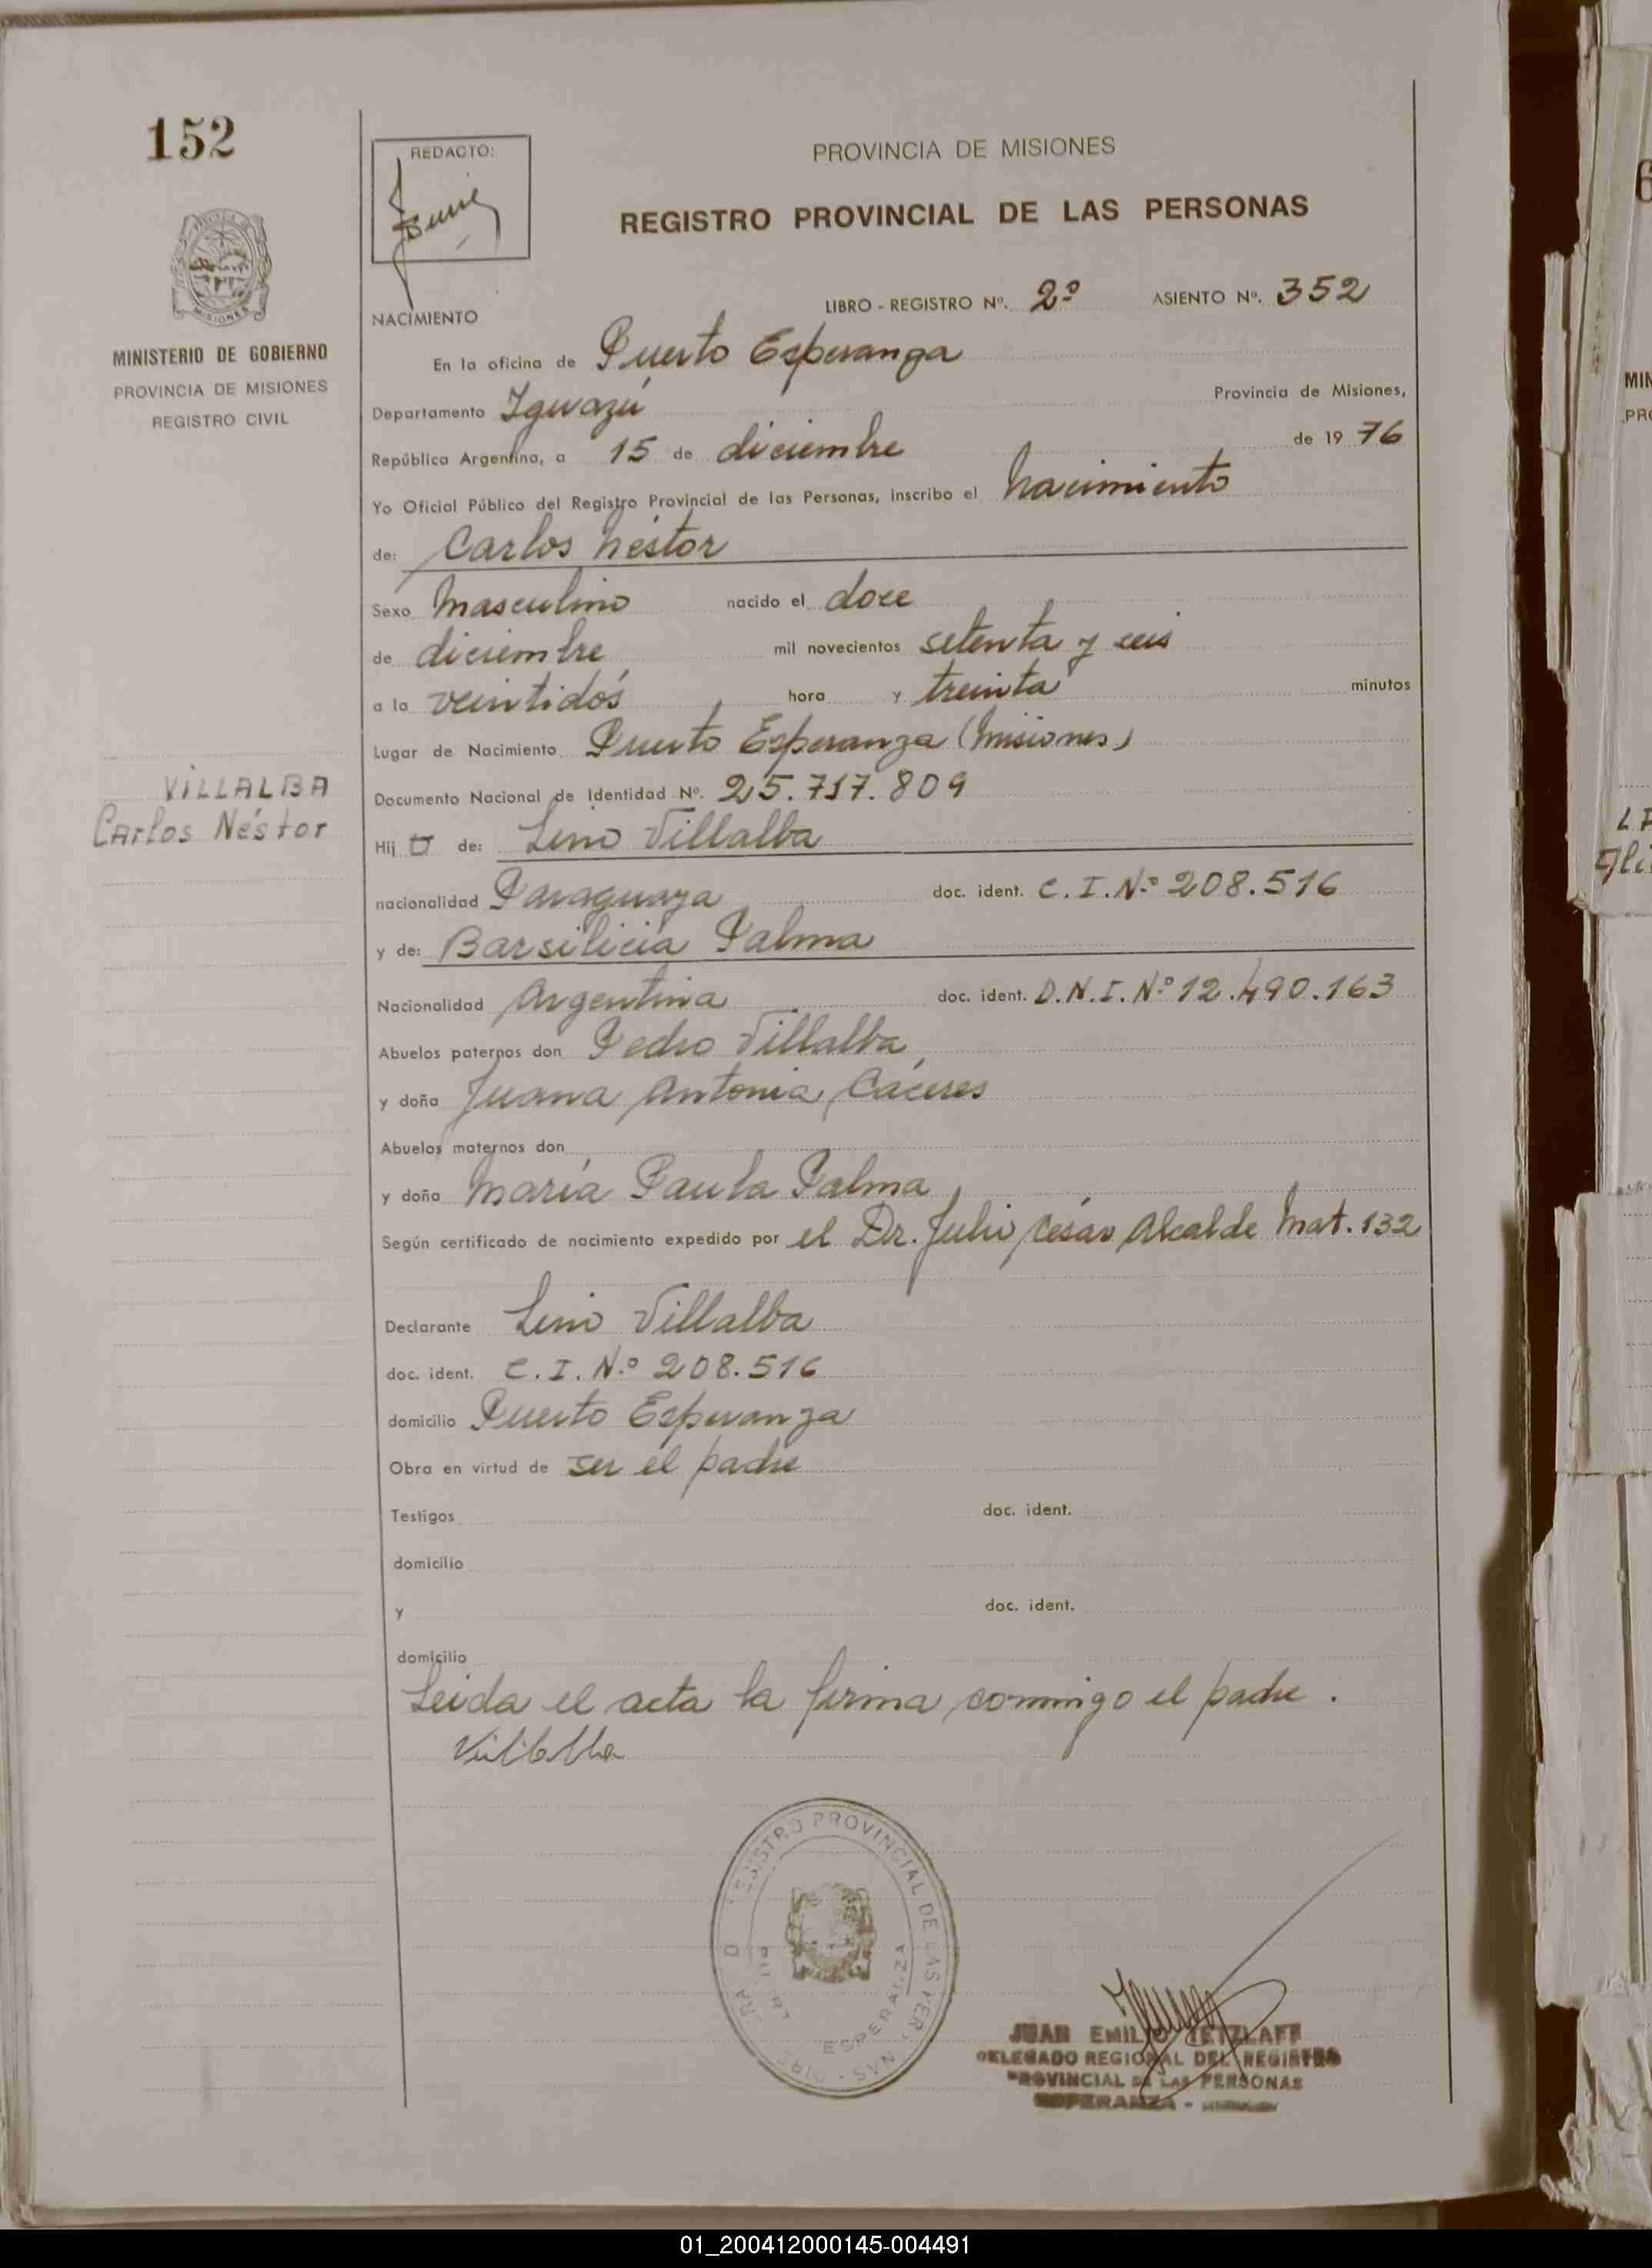 152
REDACTO:
PROVINCIA DE MISIONES
REGISTRO PROVINCIAL DE LAS PERSONAS
MISIONES
MINISTERIO DE GOBIERNO
PROVINCIA DE MISIONES
REGISTRO CIVIL
LIBRO - REGISTRO Nº. 2º ASIENTO Nº. 352
NACIMIENTO
En la oficina de Puerto Esperanza
Departamento Iguazú Provincia de Misiones,
República Argentina, a 15 de diciembre de 19 76
Yo Oficial Público del Registro Provincial de las Personas, inscribo el nacimiento
de: Carlos Néstor
Sexo Masculino nacido el doce
de diciembre mil novecientos setenta y seis
a la veintidós hora y treinta minutos
Lugar de Nacimiento Puerto Esperanza (Misiones)
VILLALBA
Carlos Néstor
Documento Nacional de Identidad Nº. 25.717.809
Hij o de: Lino Villalba
nacionalidad Paraguaya doc. ident. C.I.Nº 208.516
y de: Barsilicia Palma
Nacionalidad Argentina doc. ident. D.N.I.Nº 12.490.163
Abuelos paternos don Pedro Villalba
y doña Juana Antonia Cáceres
Abuelos maternos don
y doña María Paula Palma
Según certificado de nacimiento expedido por el Dr. Julio César Alcalde Mat. 132
Declarante Lino Villalba
doc. ident. C.I.Nº 208.516
domicilio Puerto Esperanza
Obra en virtud de ser el padre
Testigos doc. ident.
domicilio
y doc. ident.
domicilio
Leida el acta la firma conmigo el padre.
Villalba
REGISTRO PROVINCIAL DE LAS PERSONAS
ESPERANZA
JUAN EMILIO TETZLAFF
DELEGADO REGIONAL DEL REGISTRO
PROVINCIAL DE LAS PERSONAS
ESPERANZA -
01_200412000145-004491